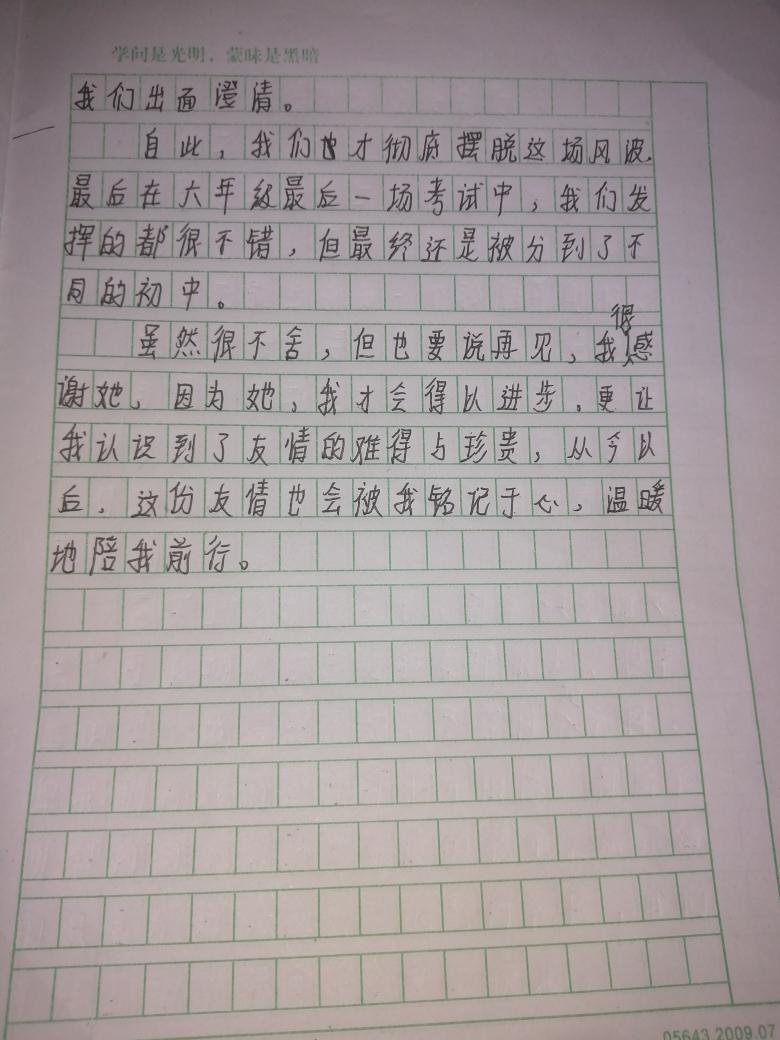 学问是光明，蒙昧是黑暗
我们出面澄清。
自此，我们也才彻底摆脱这场风波.
最后在六年级最后一场考试中，我们发
挥的都很不错，但最终还是被分到了不
同的初中。
虽然很不舍，但也要说再见，我很感
谢她，因为她，我才会得以进步。更让
我认识到了友情的难得与珍贵，从今以
后，这份友情也会被我铭记于心，温暖
地陪我前行。
05643.2009.07